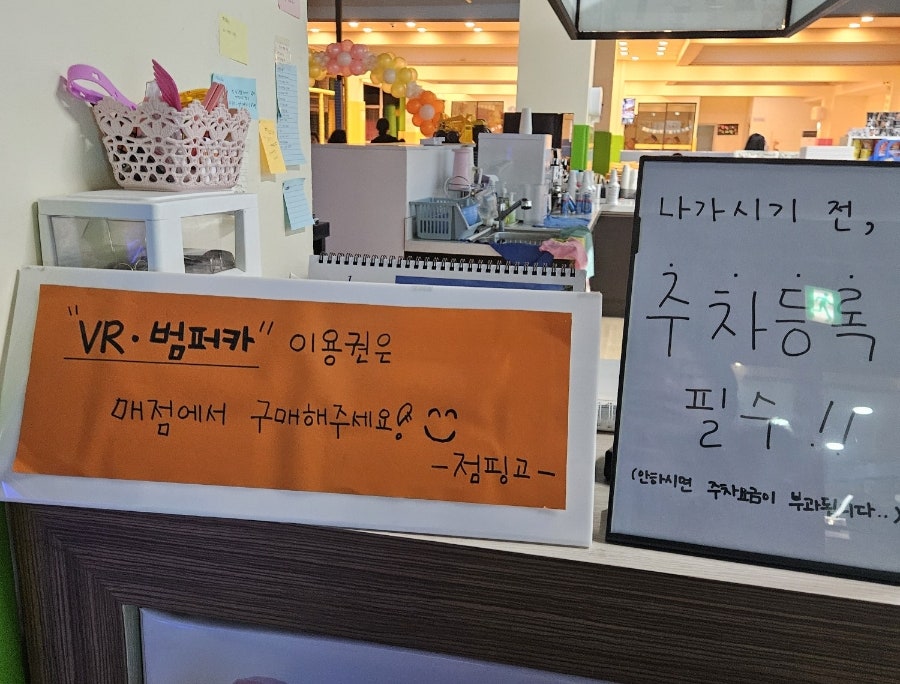 "VR·범퍼카" 이용권은
매점에서 구매해주세요!
-점핑고-
나가시기 전,
주차등록
필수!!
(안하시면 주차요금이 부과됩니다..)